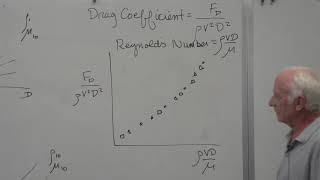 Drag Coefficient = F_D / ρV²D²
Reynolds Number = ρVD / μ
F_D / ρV²D²
μ₁₀
D
ρ₁₀
μ₁₀
ρVD / μ